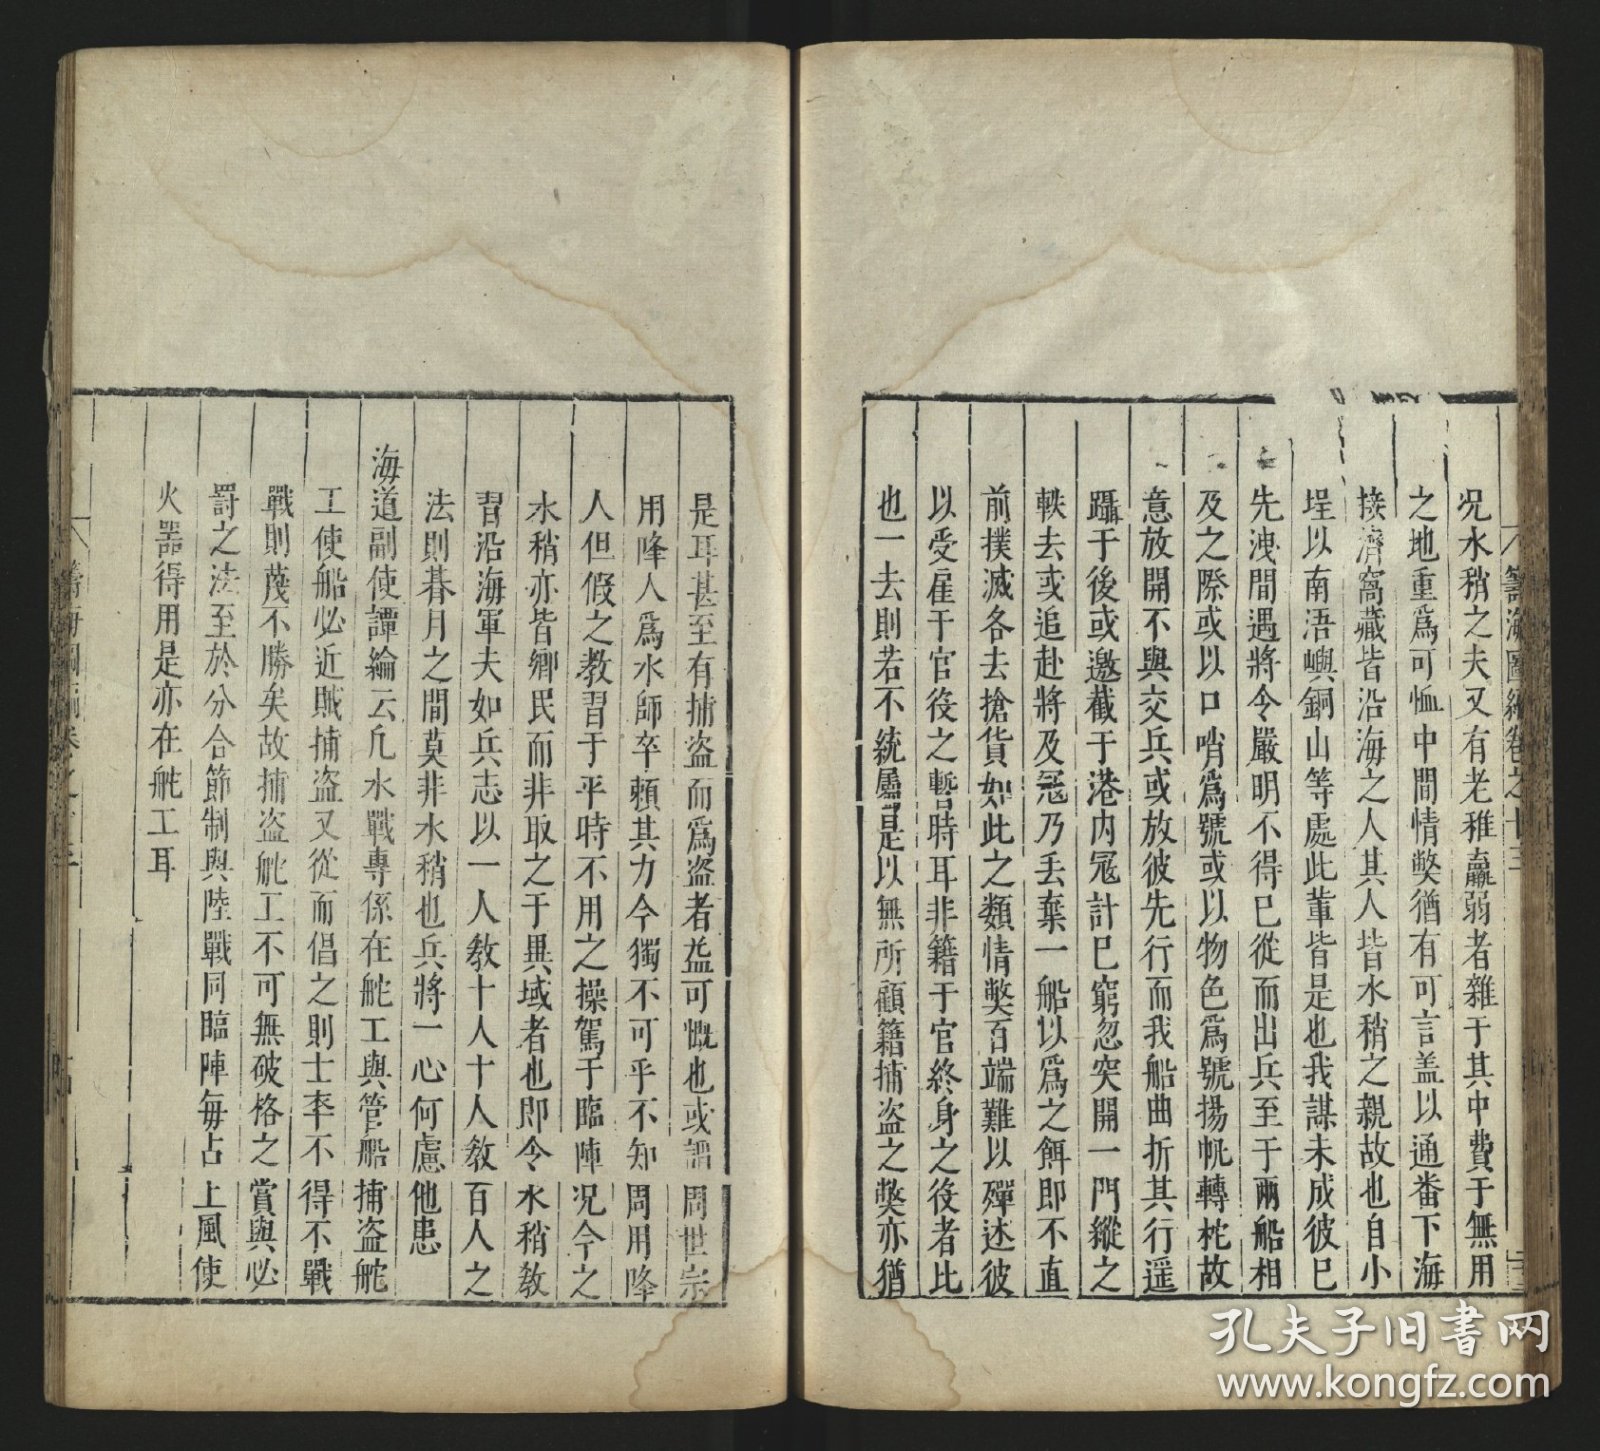 籌海圖編卷之十三
况水稍之夫又有老稚羸弱者雜于其中費于無用
之地重爲可恤中間情獘猶有可言盖以通番下海
接濟窩藏皆沿海之人其人皆水稍之親故也自小
埕以南浯嶼銅山等處此輩皆是也我謀未成彼巳
先洩間遇將令嚴明不得巳從而出兵至于兩船相
及之際或以口哨爲號或以物色爲號揚帆轉柁故
意放開不與交兵或放彼先行而我船曲折其行遥
躡于後或邀截于港内冦計巳窮忽突開一門縱之
軼去或追赴將及冦乃丢棄一船以爲之餌即不直
前撲滅各去搶貨如此之類情獘百端難以殫述彼
以受雇于官役之暫時耳非籍于官終身之役者比
也一去則若不統屬是以無所顧籍捕盗之獘亦猶
是耳甚至有捕盗而爲盗者盖可慨也或謂周世宗
用降人爲水師卒賴其力今獨不可乎不知周用降
人但假之教習于平時不用之操駕于臨陣况今之
水稍亦皆鄉民而非取之于異域者也即令水稍教
習沿海軍夫如兵志以一人教十人十人教百人之
法則朞月之間莫非水稍也兵將一心何慮他患
海道副使譚綸云凢水戰專係在舵工與管船捕盗舵
工使船必近賊捕盗又從而倡之則士卒不得不戰
戰則蔑不勝矣故捕盗舵工不可無破格之賞與必
罰之法至於分合節制與陸戰同臨陣毎占上風使
火器得用是亦在舵工耳
孔夫子旧書网
www.kongfz.com